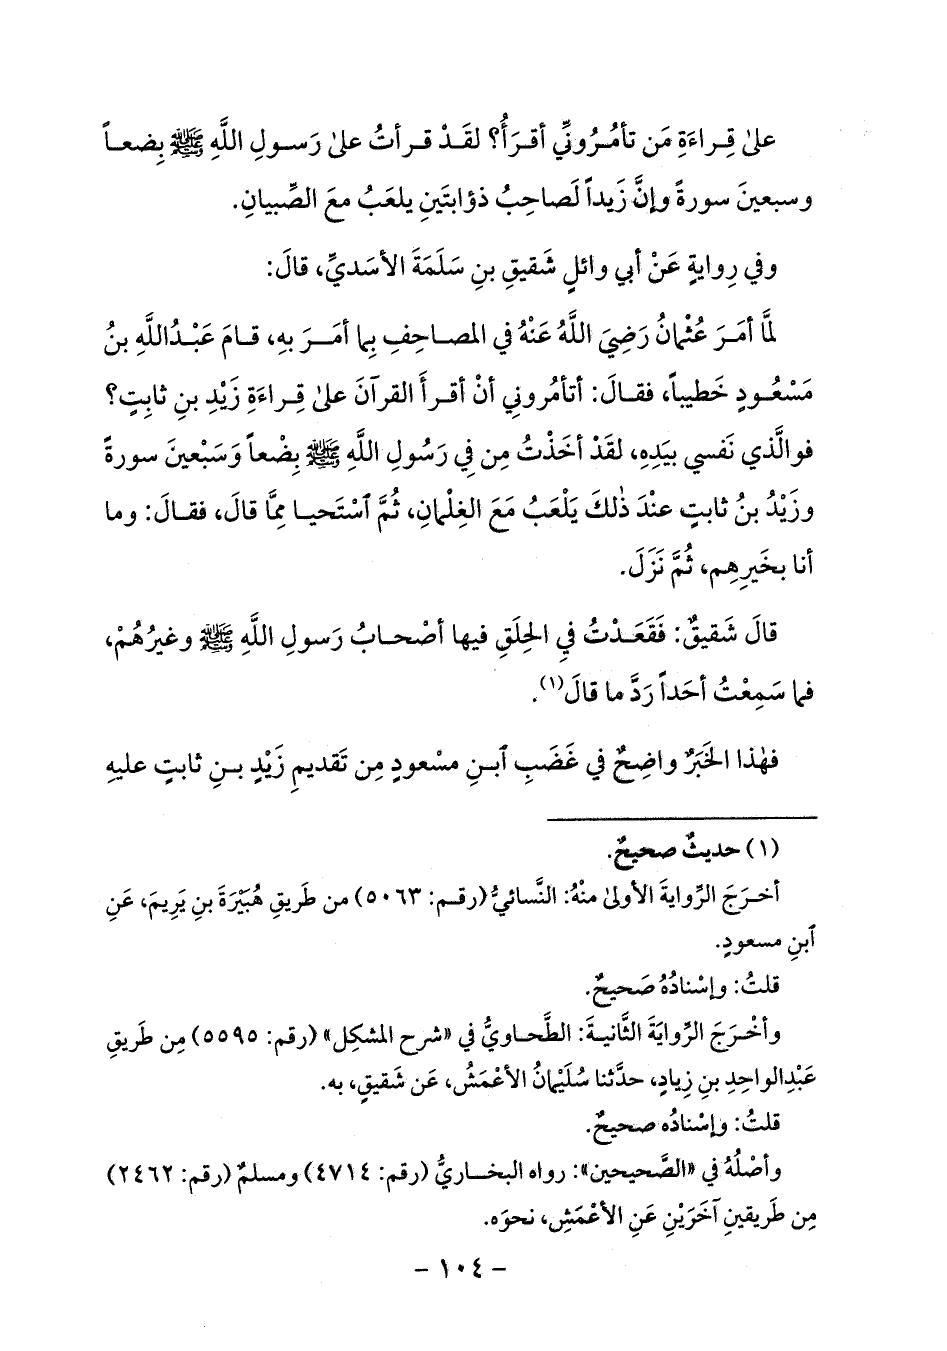 علىٰ قِراءَةِ مَن تأمُرُونِّي أقرَأُ؟ لقَدْ قرأتُ علىٰ رَسولِ اللَّهِ ﷺ بِضعاً
وسبعينَ سورةً وإنَّ زَيداً لَصاحِبُ ذؤابتَينِ يلعَبُ معَ الصِّبيانِ.
وفي رِوايةٍ عَنْ أبي وائلٍ شَقيقِ بنِ سَلَمَةَ الأسَديِّ، قالَ:
لمَّا أمَرَ عُثمانُ رَضِيَ اللَّهُ عَنْهُ في المصاحِفِ بِما أمَرَ بهِ، قامَ عَبْدُاللَّهِ بنُ
مَسْعُودٍ خَطيباً، فقالَ: أتأمُروني أنْ أقرأَ القرآنَ علىٰ قِراءَةِ زَيْدِ بنِ ثابِتٍ؟
فوالَّذي نَفسي بيَدِهِ، لقَدْ أخَذْتُ مِن في رَسُولِ اللَّهِ ﷺ بِضْعاً وَسَبْعينَ سورةً
وزَيْدُ بنُ ثابتٍ عندَ ذٰلكَ يَلْعَبُ مَعَ الغِلْمانِ، ثُمَّ ٱسْتَحيا مِمَّا قالَ، فقالَ: وما
أنا بخَيرِهِم، ثُمَّ نَزَلَ.
قالَ شَقيقٌ: فَقَعَدْتُ في الحِلَقِ فيها أصْحابُ رَسولِ اللَّهِ ﷺ وغيرُهُمْ،
فما سَمِعْتُ أحَداً رَدَّ ما قالَ(١).
فهٰذا الخَبَرُ واضِحٌ في غَضَبِ ٱبنِ مسْعودٍ مِن تَقديمِ زَيْدِ بنِ ثابتٍ عليهِ
(١) حديثٌ صحيحٌ.
أخرَجَ الرِّوايةَ الأولىٰ منْهُ: النَّسائيُّ (رقم: ٥٠٦٣) من طَريقِ هُبَيْرَةَ بنِ يَريمَ، عَنِ
ٱبنِ مسعودٍ.
قلتُ: وإسْنادُهُ صَحيحٌ.
وأخْرَجَ الرِّوايَةَ الثَّانيةَ: الطَّحاويُّ في «شرح المشكِل» (رقم: ٥٥٩٥) مِن طَريقِ
عَبْدِالواحِدِ بنِ زِيادٍ، حدَّثنا سُلَيْمانُ الأعْمَشُ، عَن شَقيقٍ، به.
قلتُ: وإسْنادُه صحيحٌ.
وأصْلُهُ في «الصَّحيحين»: رواه البخاريُّ (رقم: ٤٧١٤) ومسلمٌ (رقم: ٢٤٦٢)
مِن طَريقينِ آخَرَيْنِ عَنِ الأعْمَشِ، نحوَه.
- ١٠٤ -